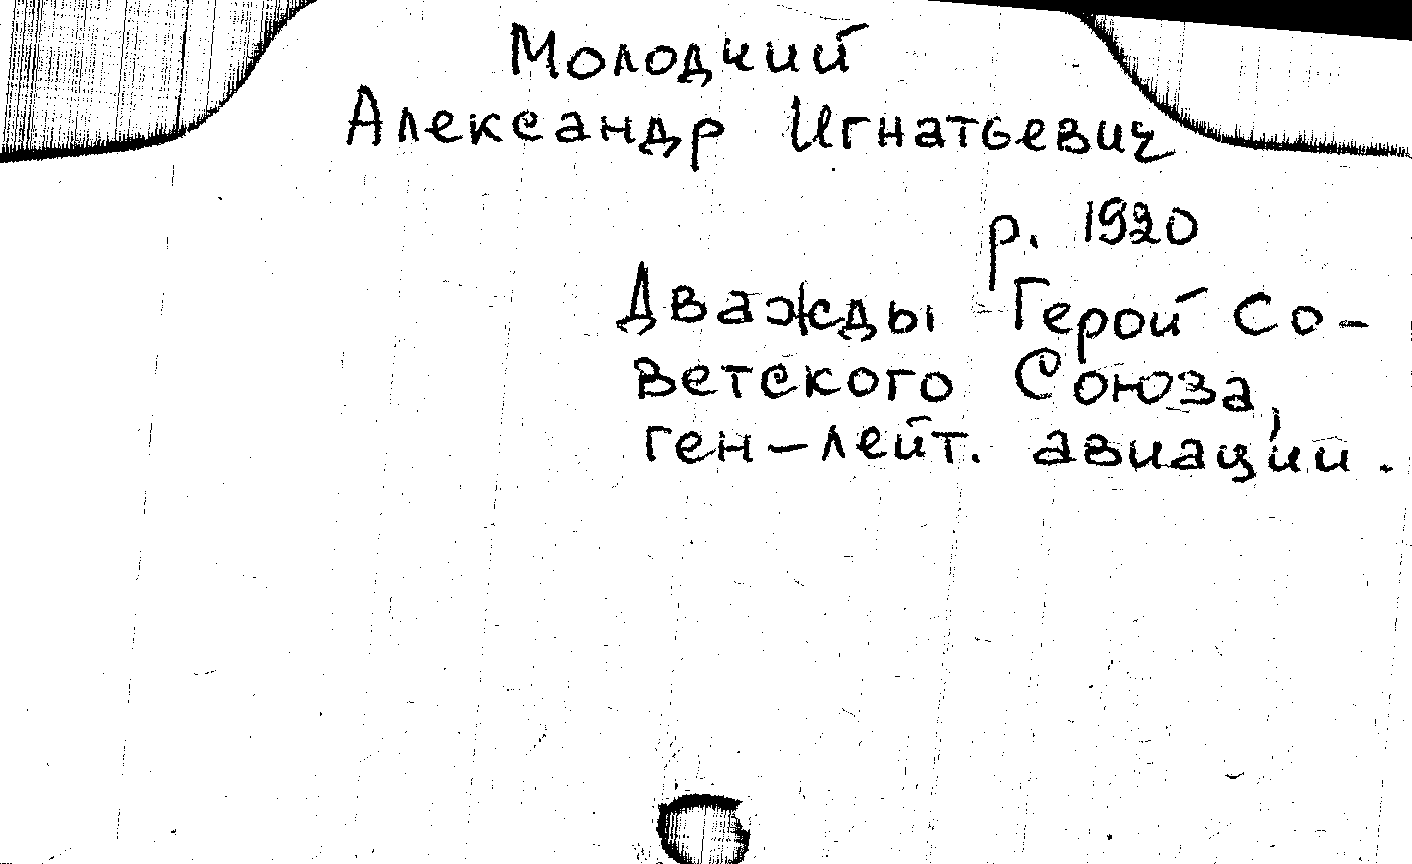 Молодчий
Александр Игнатьевич
р. 1920
Дважды Герой Со-
ветского Союза,
ген-лейт. авиации.